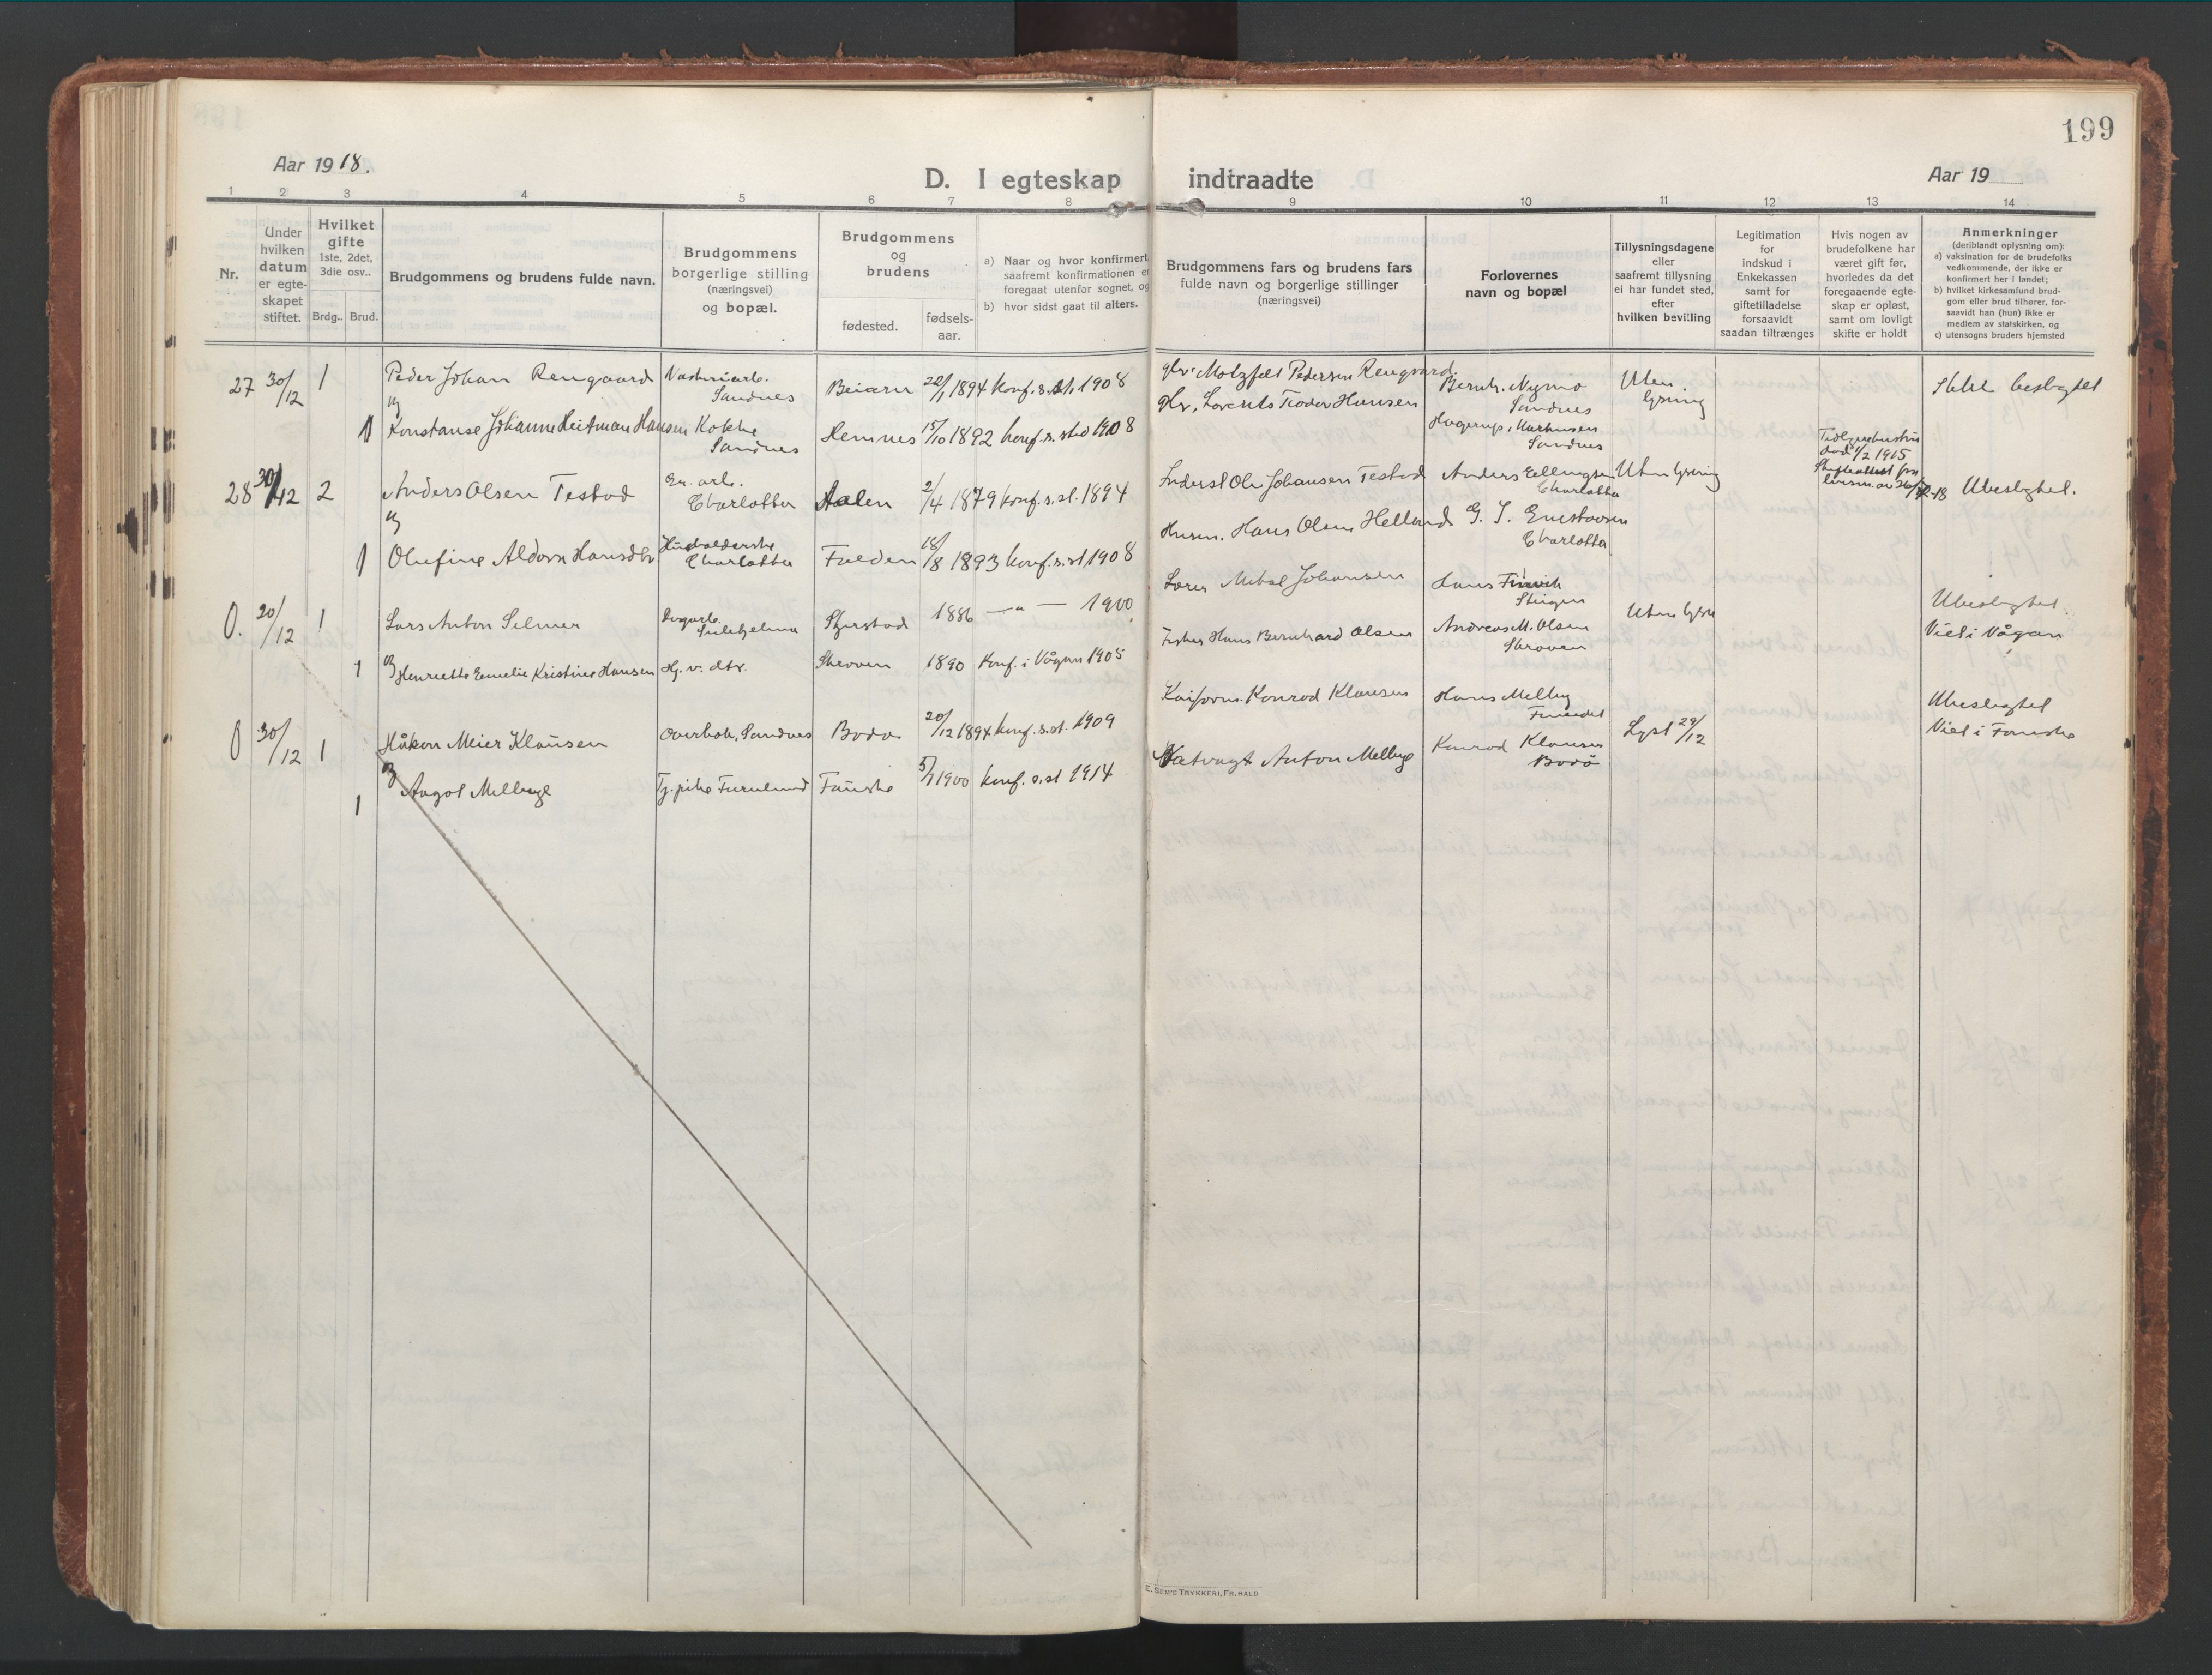 199
Aar 1918.
D. I egteskap indtraadte
Aar 19
1 2 3 4 5 6 7 8 9 10 11 12 13 14
Nr.
Under hvilken datum er egte-skapet stiftet.
Hvilket gifte
1ste, 2det, 3die osv..
Brdg.. Brud.
Brudgommens og brudens fulde navn.
Brudgommens borgerlige stilling (næringsvei) og bopæl.
Brudgommens og brudens
fødested.
fødsels-aar.
a) Naar og hvor konfirmert,
saafremt konfirmationen e
foregaat utenfor sognet, og
b) hvor sidst gaat til alters.
Brudgommens fars og brudens fars
fulde navn og borgerlige stillinger
(næringsvei)
Forlovernes
navn og bopæl
Tillysningsdagene
eller
saafremt tillysning
ei har fundet sted,
efter
hvilken bevilling
Legitimation
for
indskud i
Enkekassen
samt for
giftetilladelse
forsaavidt
saadan tiltrænges
Hvis nogen av
brudefolkene har
været gift før,
hvorledes da det
foregaaende egte-
skap er opløst,
samt om lovligt
skifte er holdt
Anmerkninger
(deriblandt oplysning om):
a) vaksination for de brudefolks
vedkommende, der ikke er
konfirmert her i landet;
b) hvilket kirkesamfund brud-
gom eller brud tilhører, for-
saavidt han (hun) ikke er
medlem av statskirken, og
c) utensogns bruders hjemsted
27 30/12 1 Peder Johan Rengaard
Sandnes
Beiarn 22/1 1894 konf. s. st. 1908
Motzfelt Pedersen Rengaard.
Bernh. Nymo
Sandnes
Uten
lysning
beslegtet
og
1 Konstanse Johanne Heitman Hansen Kokke
Sandnes
Hemnes 15/10 1892 konf. s. sted 1908
Lorents Teodor Hansen
Hagerup Markussen
Sandnes
28 30/12 2 Anders Olsen Testad
Charlotta
Aalen 2/4 1879 konf. s. st. 1894
Ole Johansen Testad
Anders Ellingsen
Charlotta
Uten lysning
død 1/2 1915
Ubeslegtet.
og
1 Olufine Aldora Hansdtr.
Husholderske
Charlotta
Folden 18/8 1893 konf. s. st. 1908
Husm. Hans Olsen Helland
Charlotta
0. 20/12 1 Lars Anton Selmer
Sulitjelma
1886 — " — 1900
Johansen
Steigen
Uten lysn
Ubeslegtet.
Viet i Vågan
og
1 Henriette Emelie Kristine Hansen Hj. v. dtr.
Skroven 1890 Konf. i Vågan 1905
Fisker Hans Bernhard Olsen
Andreas M. Olsen
Skroven
0 30/12 1 Håkon Meier Klausen
Sandnes
Bodø 20/12 1894 konf. s. st. 1909
Konrad Klausen
Hans Melby
Lyst 29/12
Ubeslegtet
Viet i Fauske
og
1 Aagot Mellbye
Tj. pike Furulund
Fauske 5/7 1900 konf. s. st. 1914
Natvagt Anton Mellbye
Konrad Klausen
Bodø
E. SEM'S TRYKKERI, FR.HALD